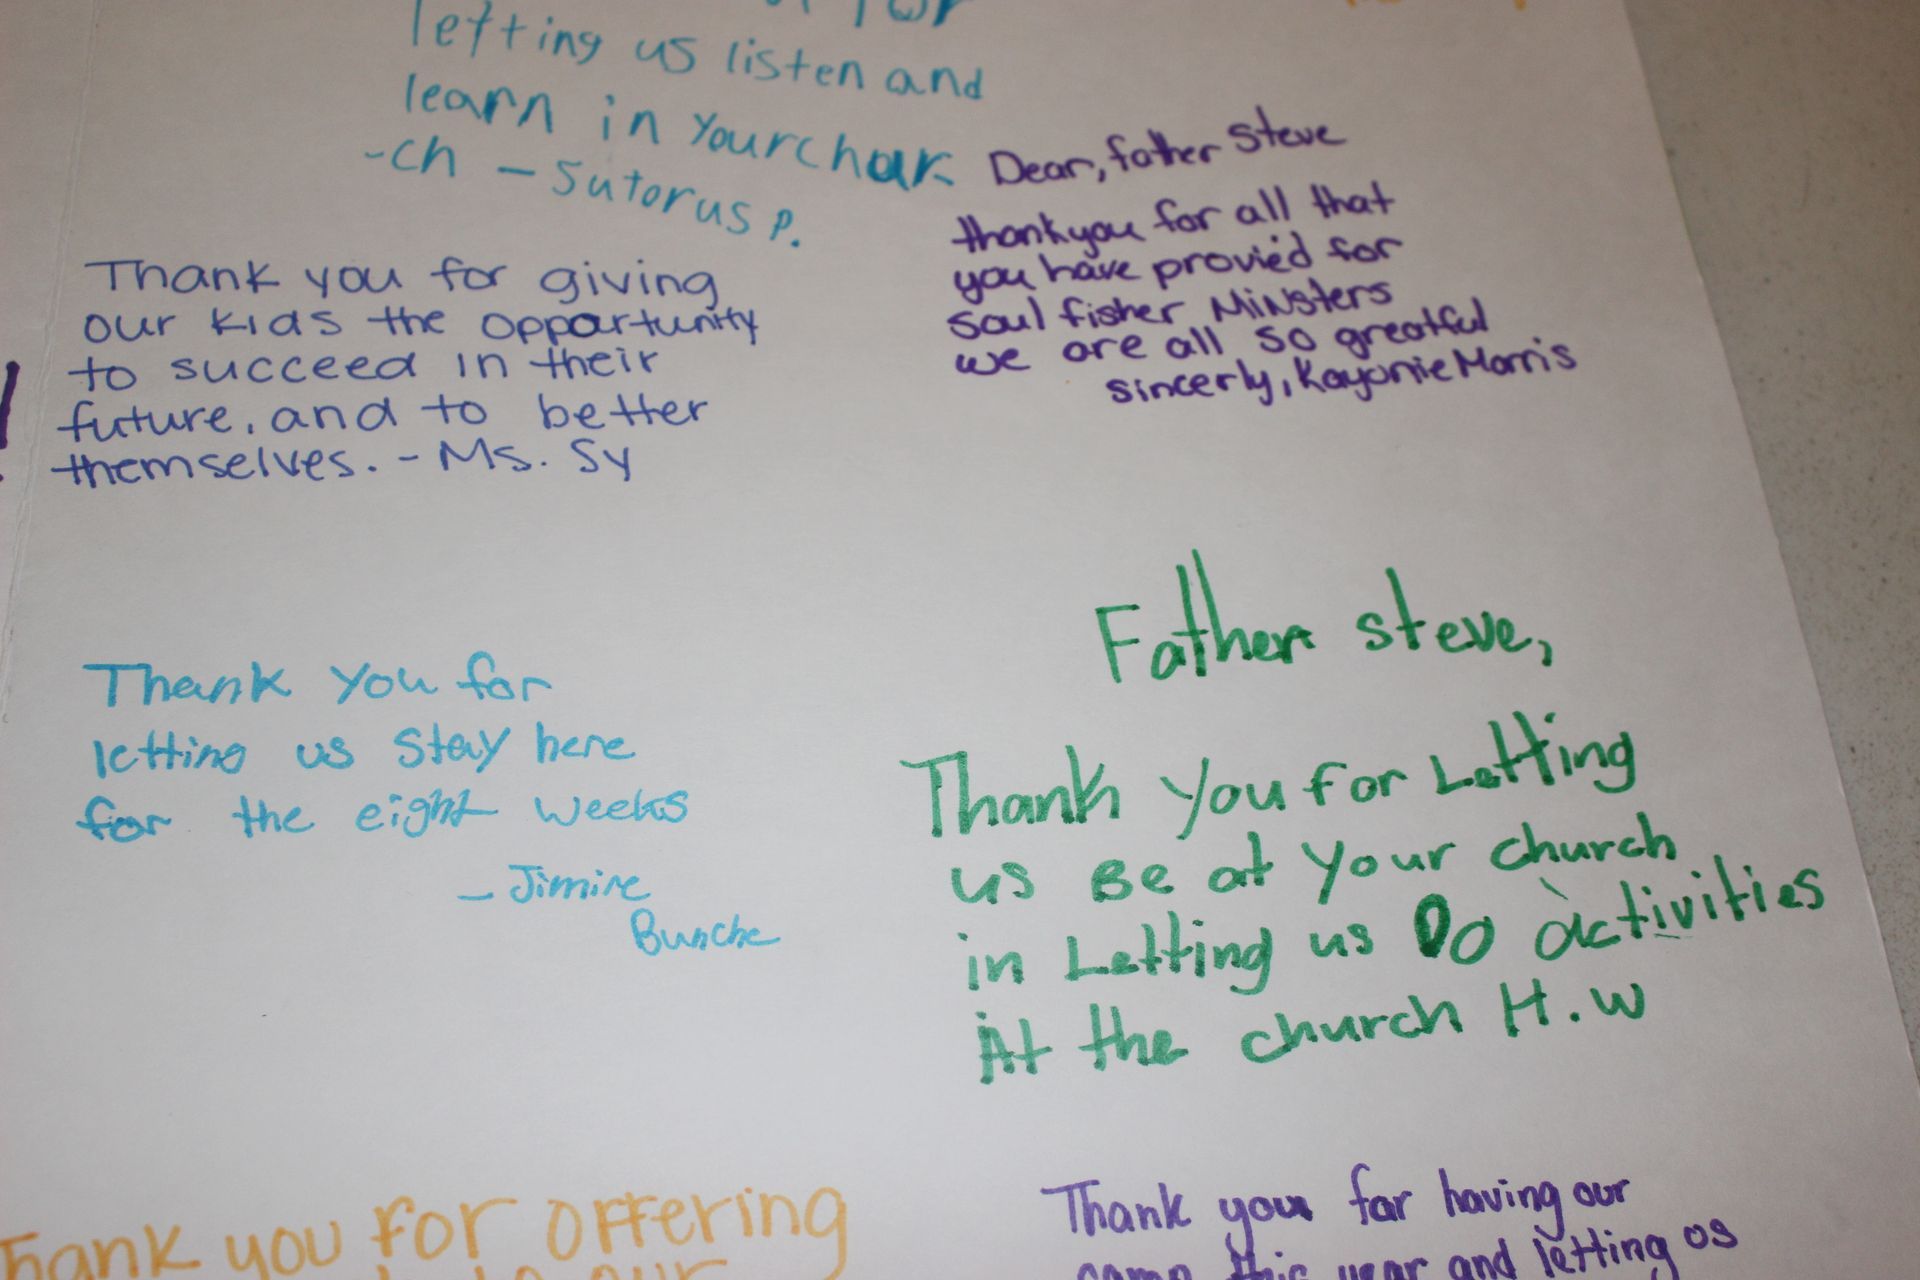 for
letting us listen and
learn in your chur
-ch - Sutorus P.
Dear, father Steve
thankyou for all that
you have provied for
soul fisher Minsters
we are all so greatful
sincerly, Kayonie Morris
Thank you for giving
our kids the opportunity
to succeed in their
future, and to better
themselves. - Ms. Sy
Thank You for
letting us stay here
for the eight weeks
- Jimire
Bunche
Father steve,
Thank You for Letting
us Be at Your church
in Letting us Do activities
At the church H.w
Thank you for offering
to our
Thank you for having our
camp this year and letting us